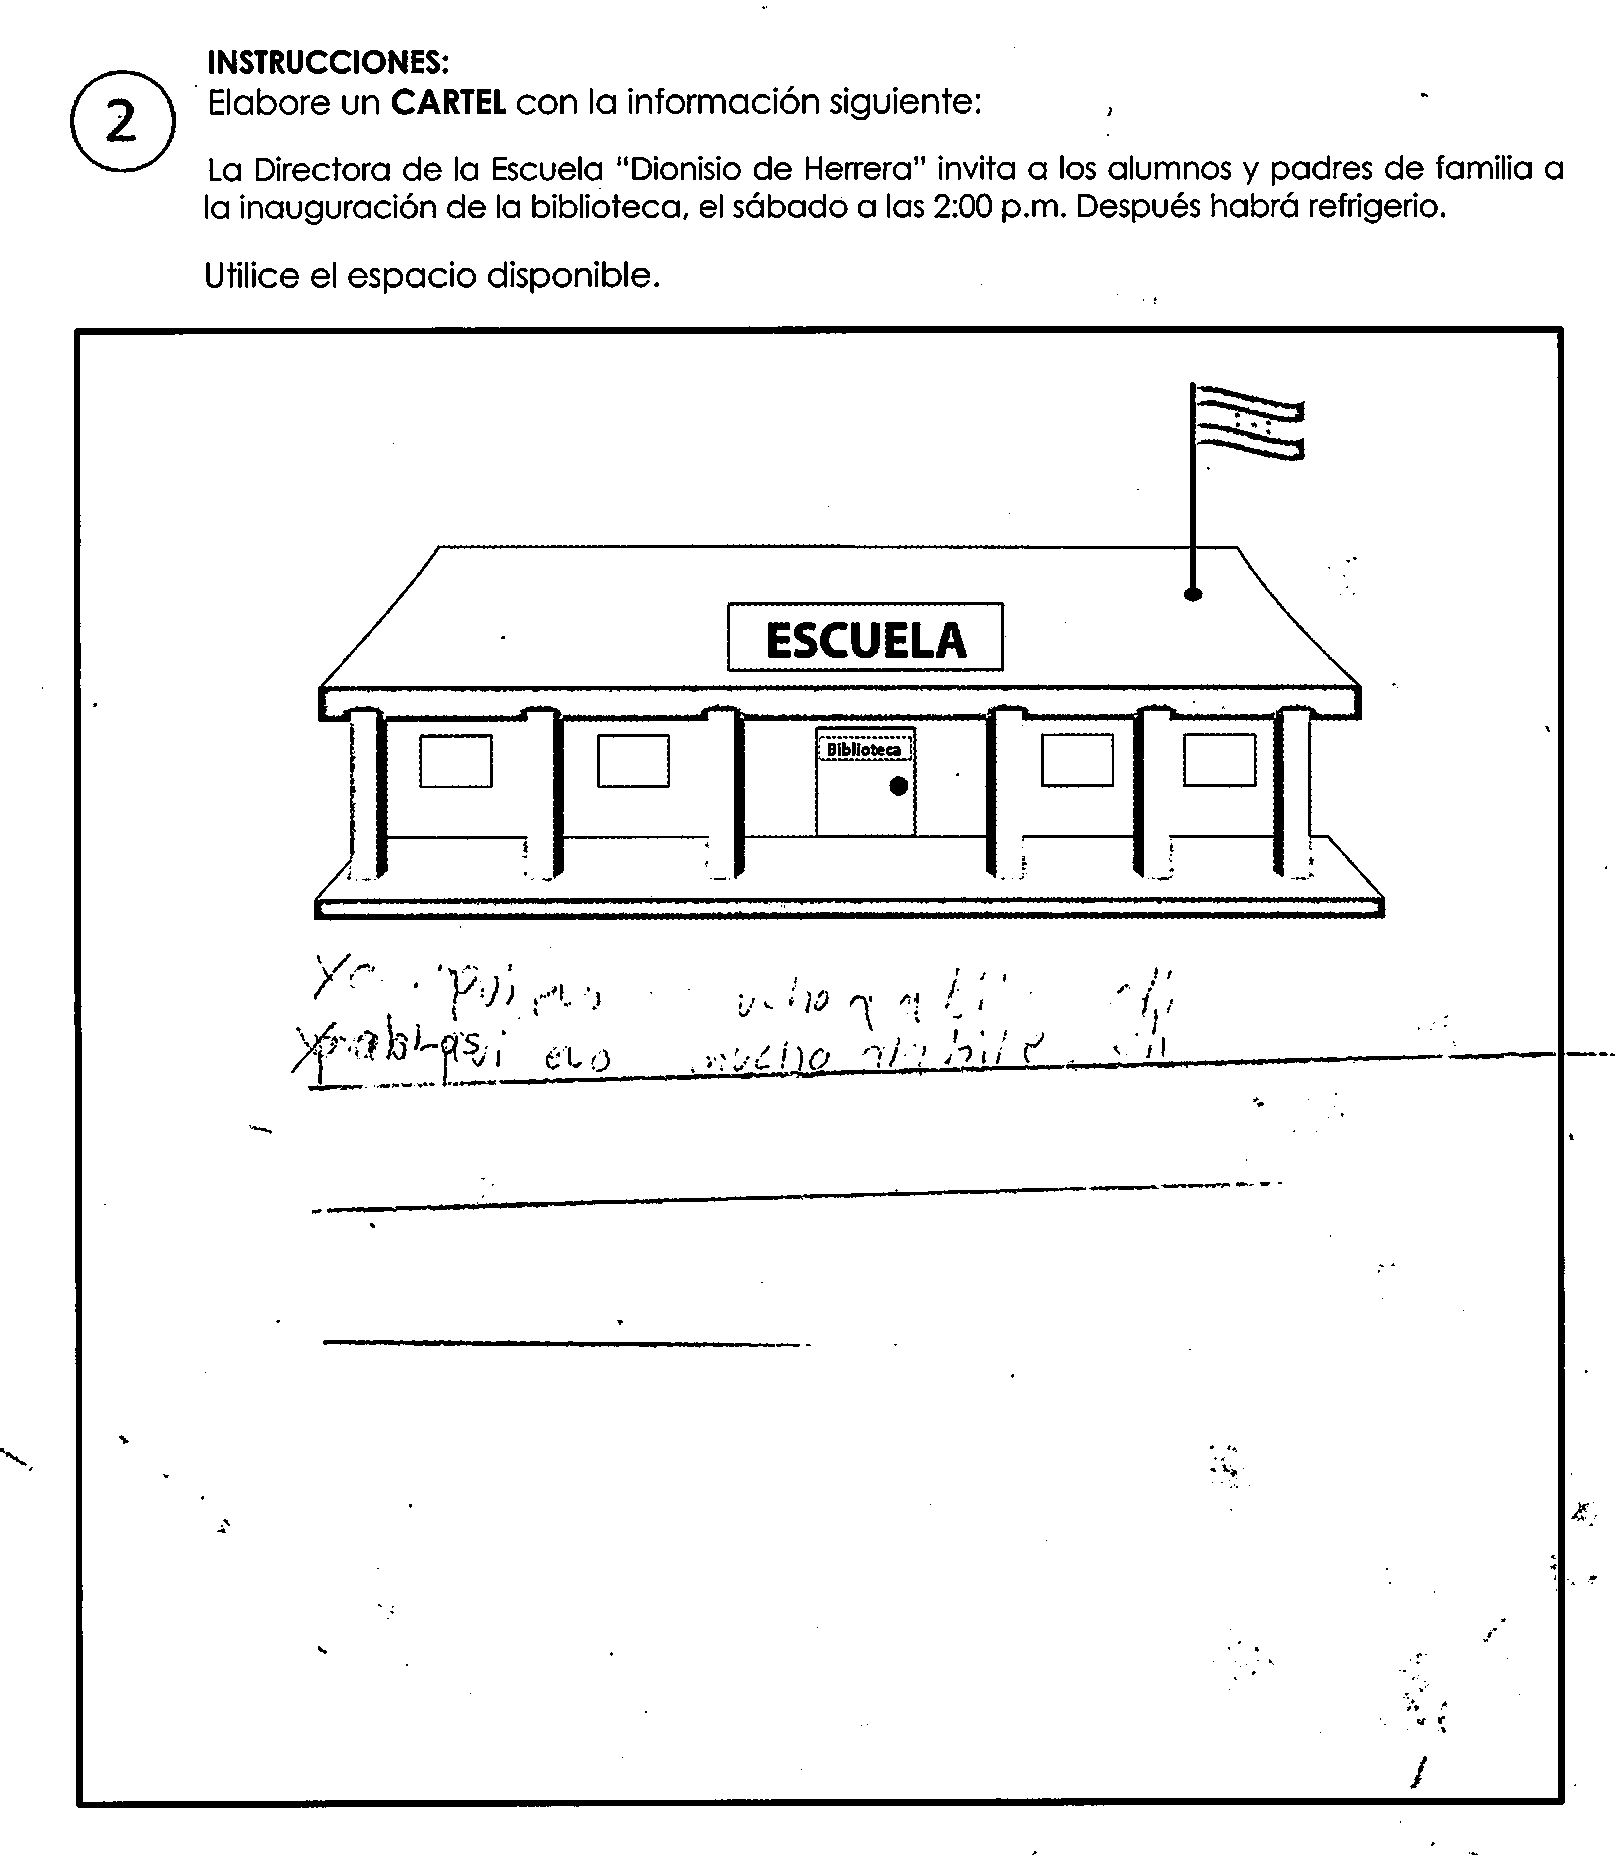 INSTRUCCIONES:
2
Elabore un CARTEL con la información siguiente:
La Directora de la Escuela "Dionisio de Herrera" invita a los alumnos y padres de familia a
la inauguración de la biblioteca, el sábado a las 2:00 p.m. Después habrá refrigerio.
Utilice el espacio disponible.
ESCUELA
Biblioteca
mucho